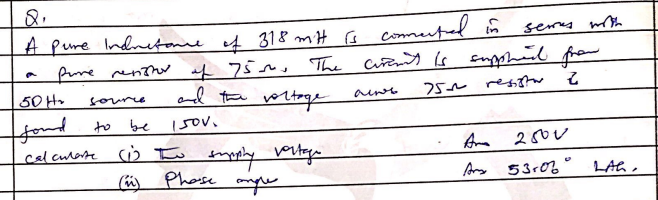 Q.
A pure Inductance of 318 mH is connected in series with
a pure resistor of 75 Ω. The circuit is supplied from
50 Hz source and the voltage across 75Ω resistor is
found to be 150V.
calculate (i) The supply voltage Ans 250V
(ii) Phase angle Ans 53.06° LAG.